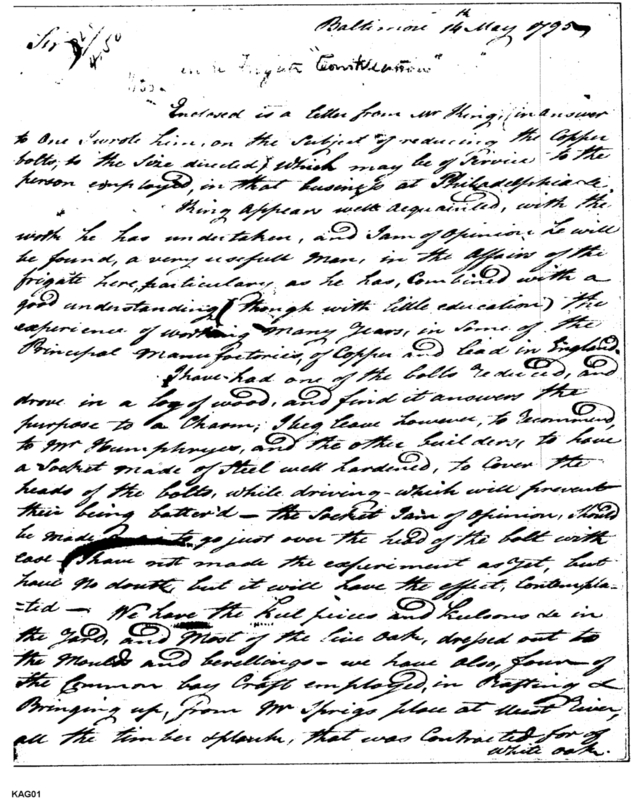 Baltimore 14th May 1795
Sir
Frigate "Constellation"
Enclosed is a letter from Mr King, (in answer
to One I wrote him, on the Subject of reducing the Copper
bolts, to the Size directed) which may be of Service to the
person employed, in that business at Philadelphia
King Appears well acquainted, with the
work he has undertaken, and I am of Opinion he will
be found, a very usefull Man, in the Affairs of the
frigate here, particulary, as he has, Combined with a
good understanding (though with little education) the
experience of working Many Years, in Some of the
Principal Manufactories, of Copper and lead in England.
I have had one of the bolts reduced, and
drove in a log of wood, and find it answers the
purpose to a Charm; I beg leave however, to recommend,
to Mr Humphreys, and the other builders, to have
a Socket made of Steel well hardened, to Cover the
heads of the bolts, while driving - which will prevent
their being batter'd - the Socket I am of Opinion, Should
be made go just over the head of the bolt with
ease I have not made the experiment as Yet, but
have no doubt but it will have the effect, Contempla-
-ted - We have the Keel pieces and Keelsons &c in
the Yard, and Most of the Live Oak, dressed out to
the Moulds and bevellings - we have also, four of
the Common bay Craft employed, in Rafting &
Bringing up, from Mr Sprigs place at West River,
all the timber & plank, that was Contracted for of
white oak.
KAG01